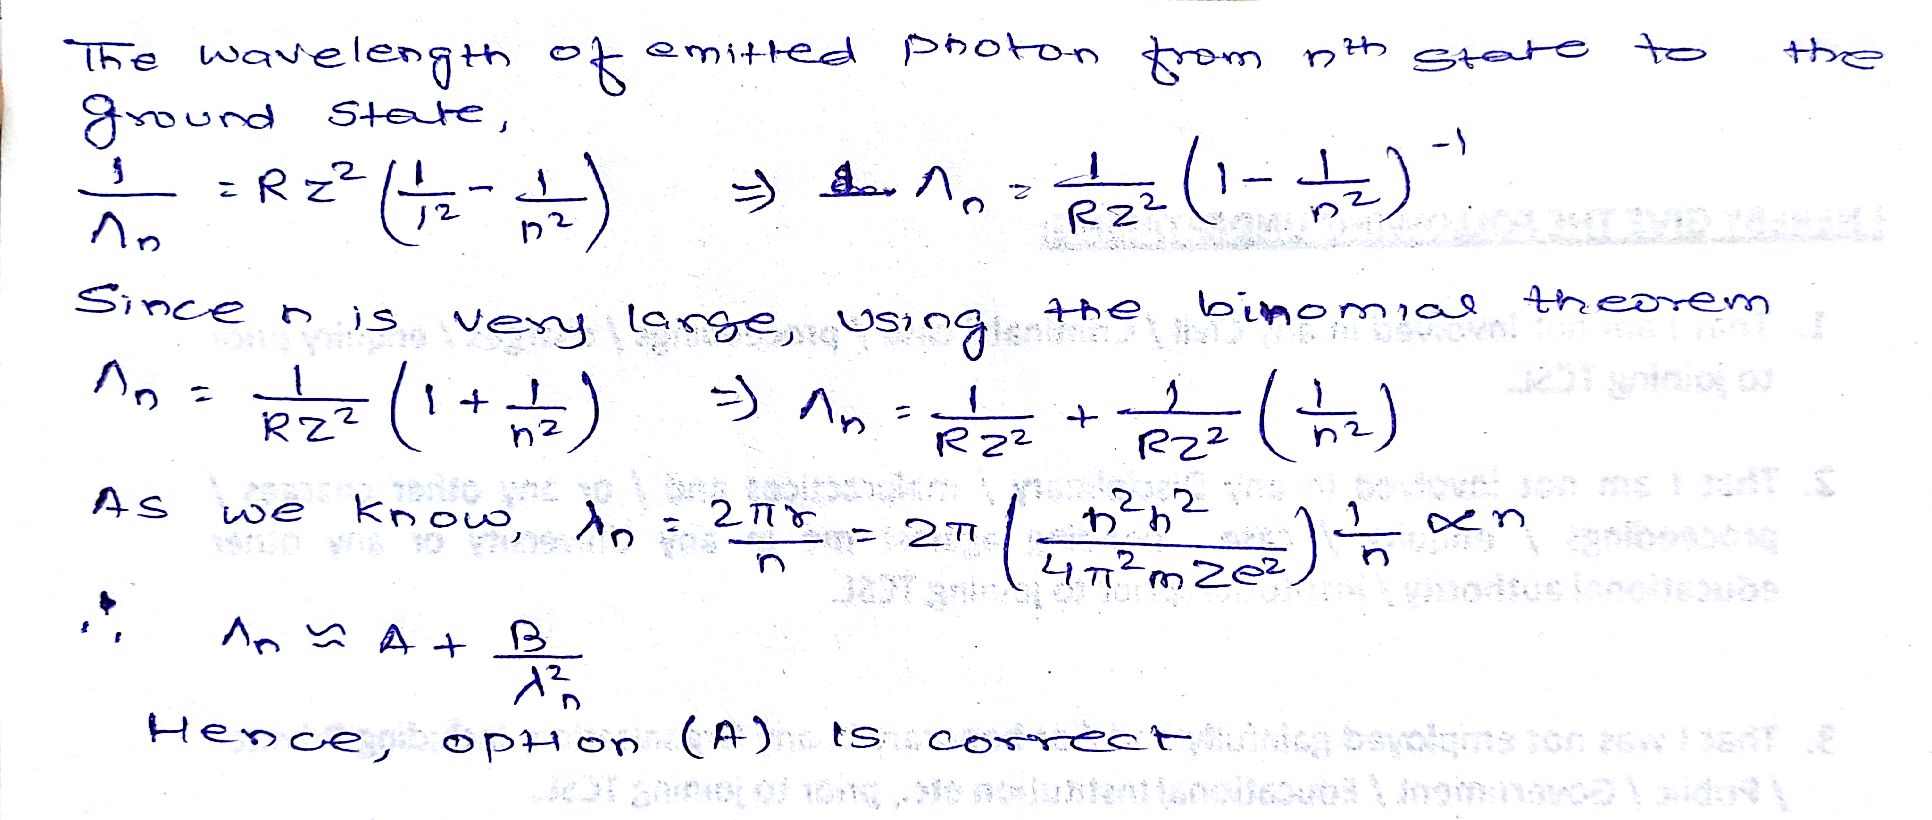 The wavelength of emitted photon from nth state to the
ground state,
1/Λn = RZ² (1/1² - 1/n²) ⇒ Λn = 1/RZ² (1 - 1/n²)⁻¹
Since n is very large, using the binomial theorem
Λn = 1/RZ² (1 + 1/n²) ⇒ Λn = 1/RZ² + 1/RZ² (1/n²)
As we know, λn = 2πr/n = 2π (n²h²/4π²mZe²) 1/n ∝ n
∴ Λn ≈ A + B/λ²n
Hence, option (A) is correct